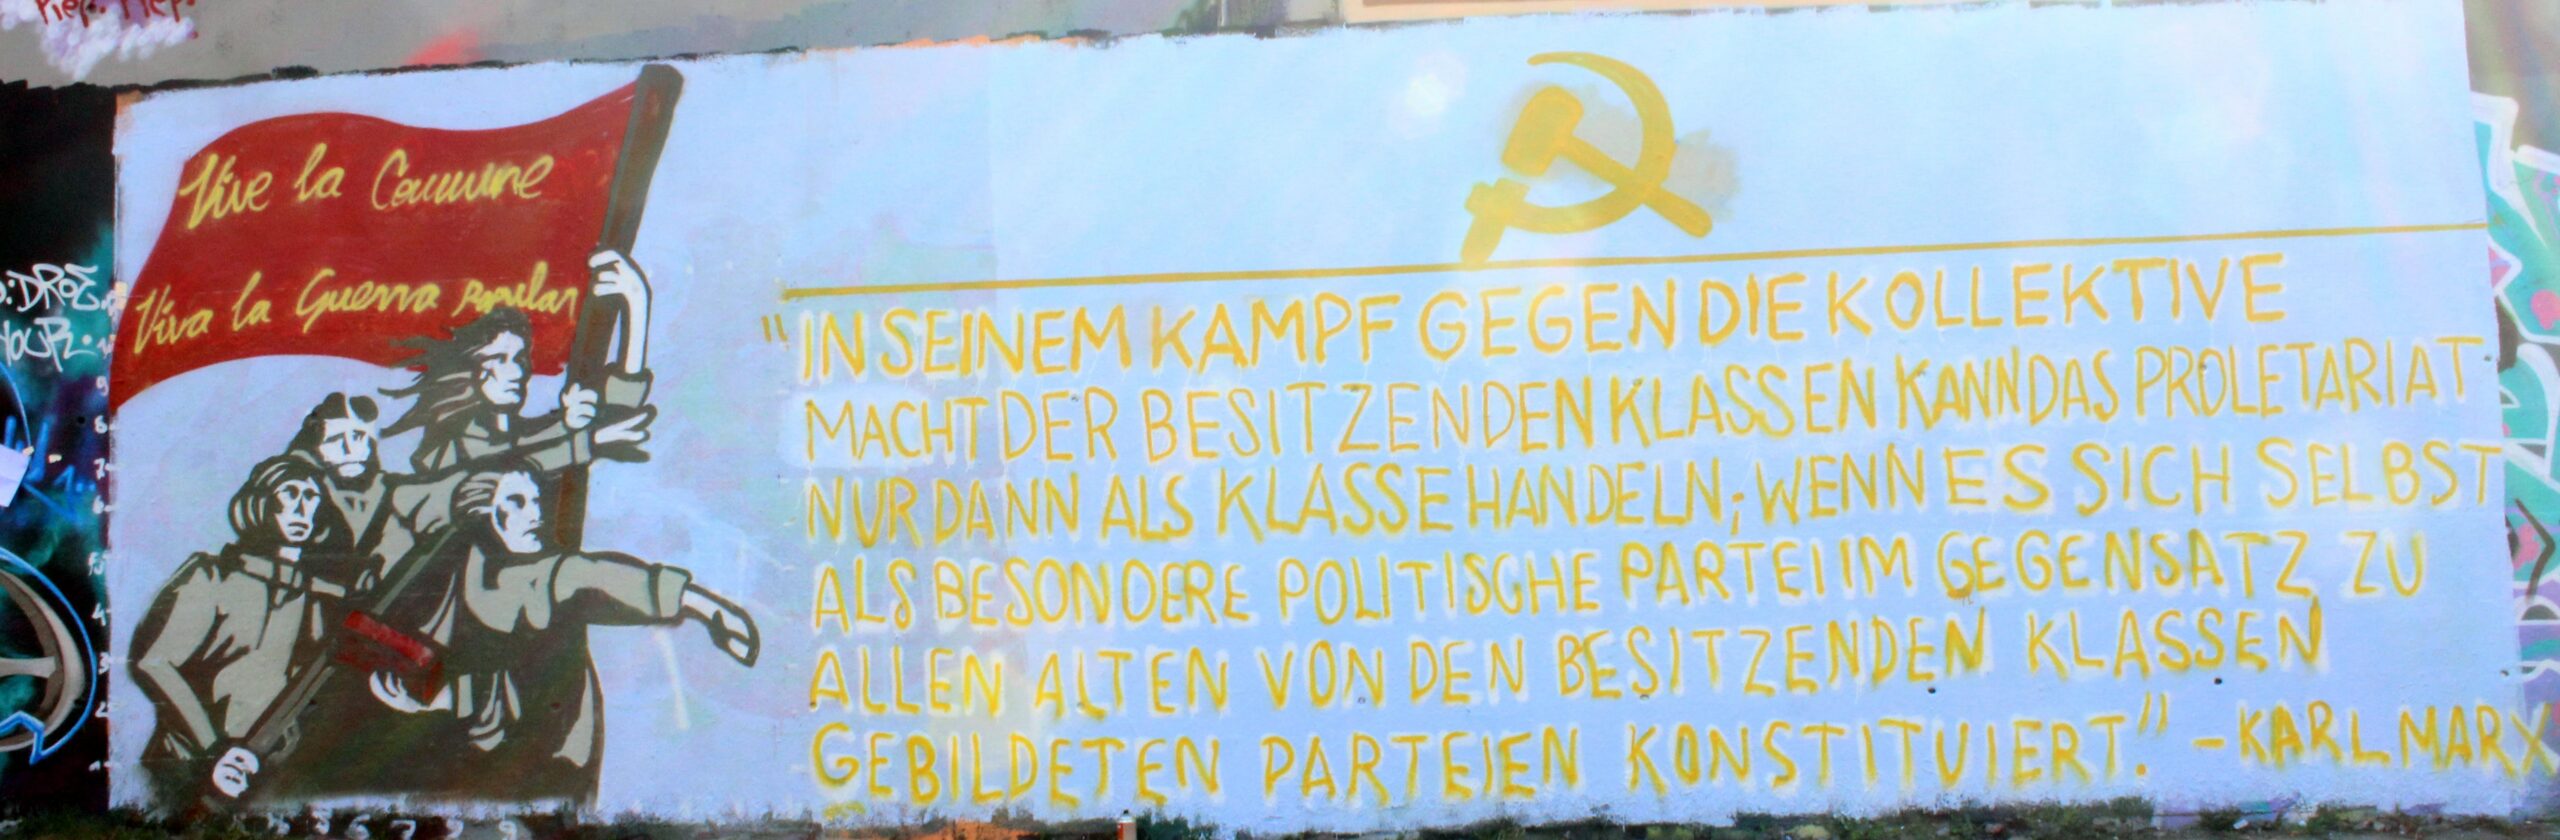 Piep. Piep.
Vive la Commune
Viva la Guerra popular
DROE
YOUR
"IN SEINEM KAMPF GEGEN DIE KOLLEKTIVE
MACHT DER BESITZENDEN KLASSEN KANN DAS PROLETARIAT
NUR DANN ALS KLASSE HANDELN; WENN ES SICH SELBST
ALS BESONDERE POLITISCHE PARTEI IM GEGENSATZ ZU
ALLEN ALTEN VON DEN BESITZENDEN KLASSEN
GEBILDETEN PARTEIEN KONSTITUIERT." - KARL MARX